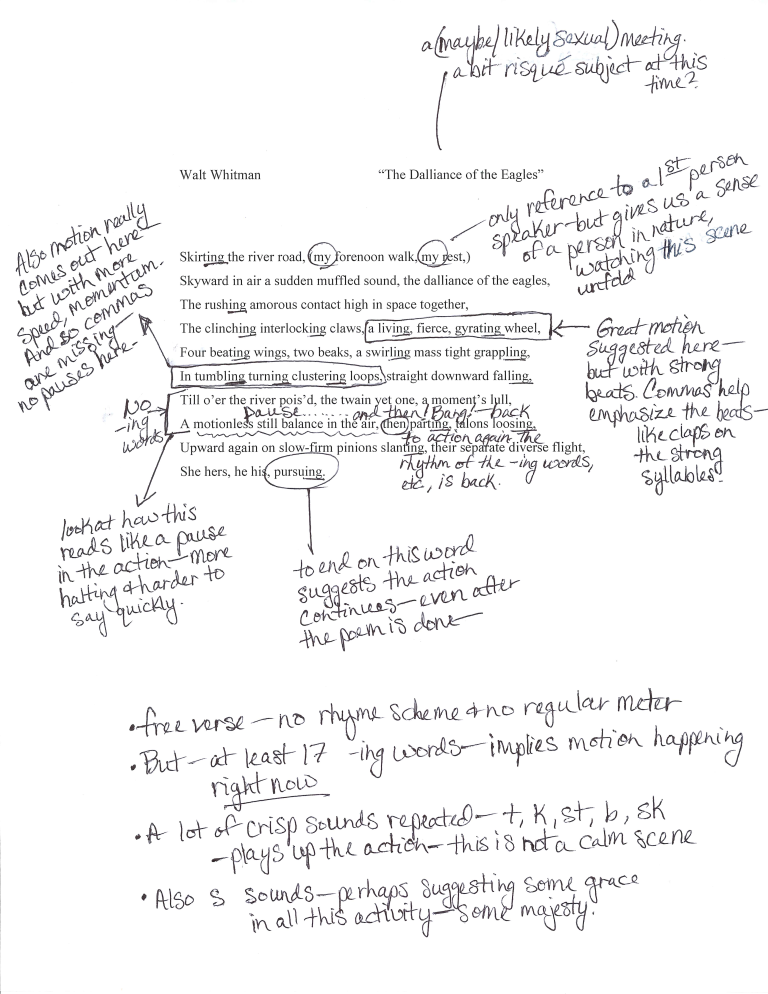 a (maybe/likely sexual) meeting.
a bit risqué subject at this
time?
Walt Whitman
“The Dalliance of the Eagles”
only reference to a 1st person
speaker—but gives us a sense
of a person in nature,
watching this scene
unfold
Also motion really
comes out here—
but with more
speed, momentum.
And so commas
are missing—
no pauses here—
Skirting the river road, (my forenoon walk, my rest,)
Skyward in air a sudden muffled sound, the dalliance of the eagles,
The rushing amorous contact high in space together,
The clinching interlocking claws, a living, fierce, gyrating wheel,
Four beating wings, two beaks, a swirling mass tight grappling,
In tumbling turning clustering loops, straight downward falling,
Till o’er the river pois’d, the twain yet one, a moment’s lull,
pause...... and then! Bang!—back
A motionless still balance in the air, then parting, talons loosing,
to action again. The
Upward again on slow-firm pinions slanting, their separate diverse flight,
rhythm of the -ing words,
She hers, he his, pursuing.
etc., is back.
Great motion
suggested here—
but with strong
beats. Commas help
emphasize the beats—
like claps on
the strong
syllables!
No
-ing
words
look at how this
reads like a pause
in the action—more
halting & harder to
say quickly.
to end on this word
suggests the action
continues—even after
the poem is done—
• free verse—no rhyme scheme & no regular meter
• But—at least 17 -ing words—implies motion happening
right now
• A lot of crisp sounds repeated—t, k, st, b, sk
—plays up the action—this is not a calm scene
• Also s sounds—perhaps suggesting some grace
in all this activity—some majesty.